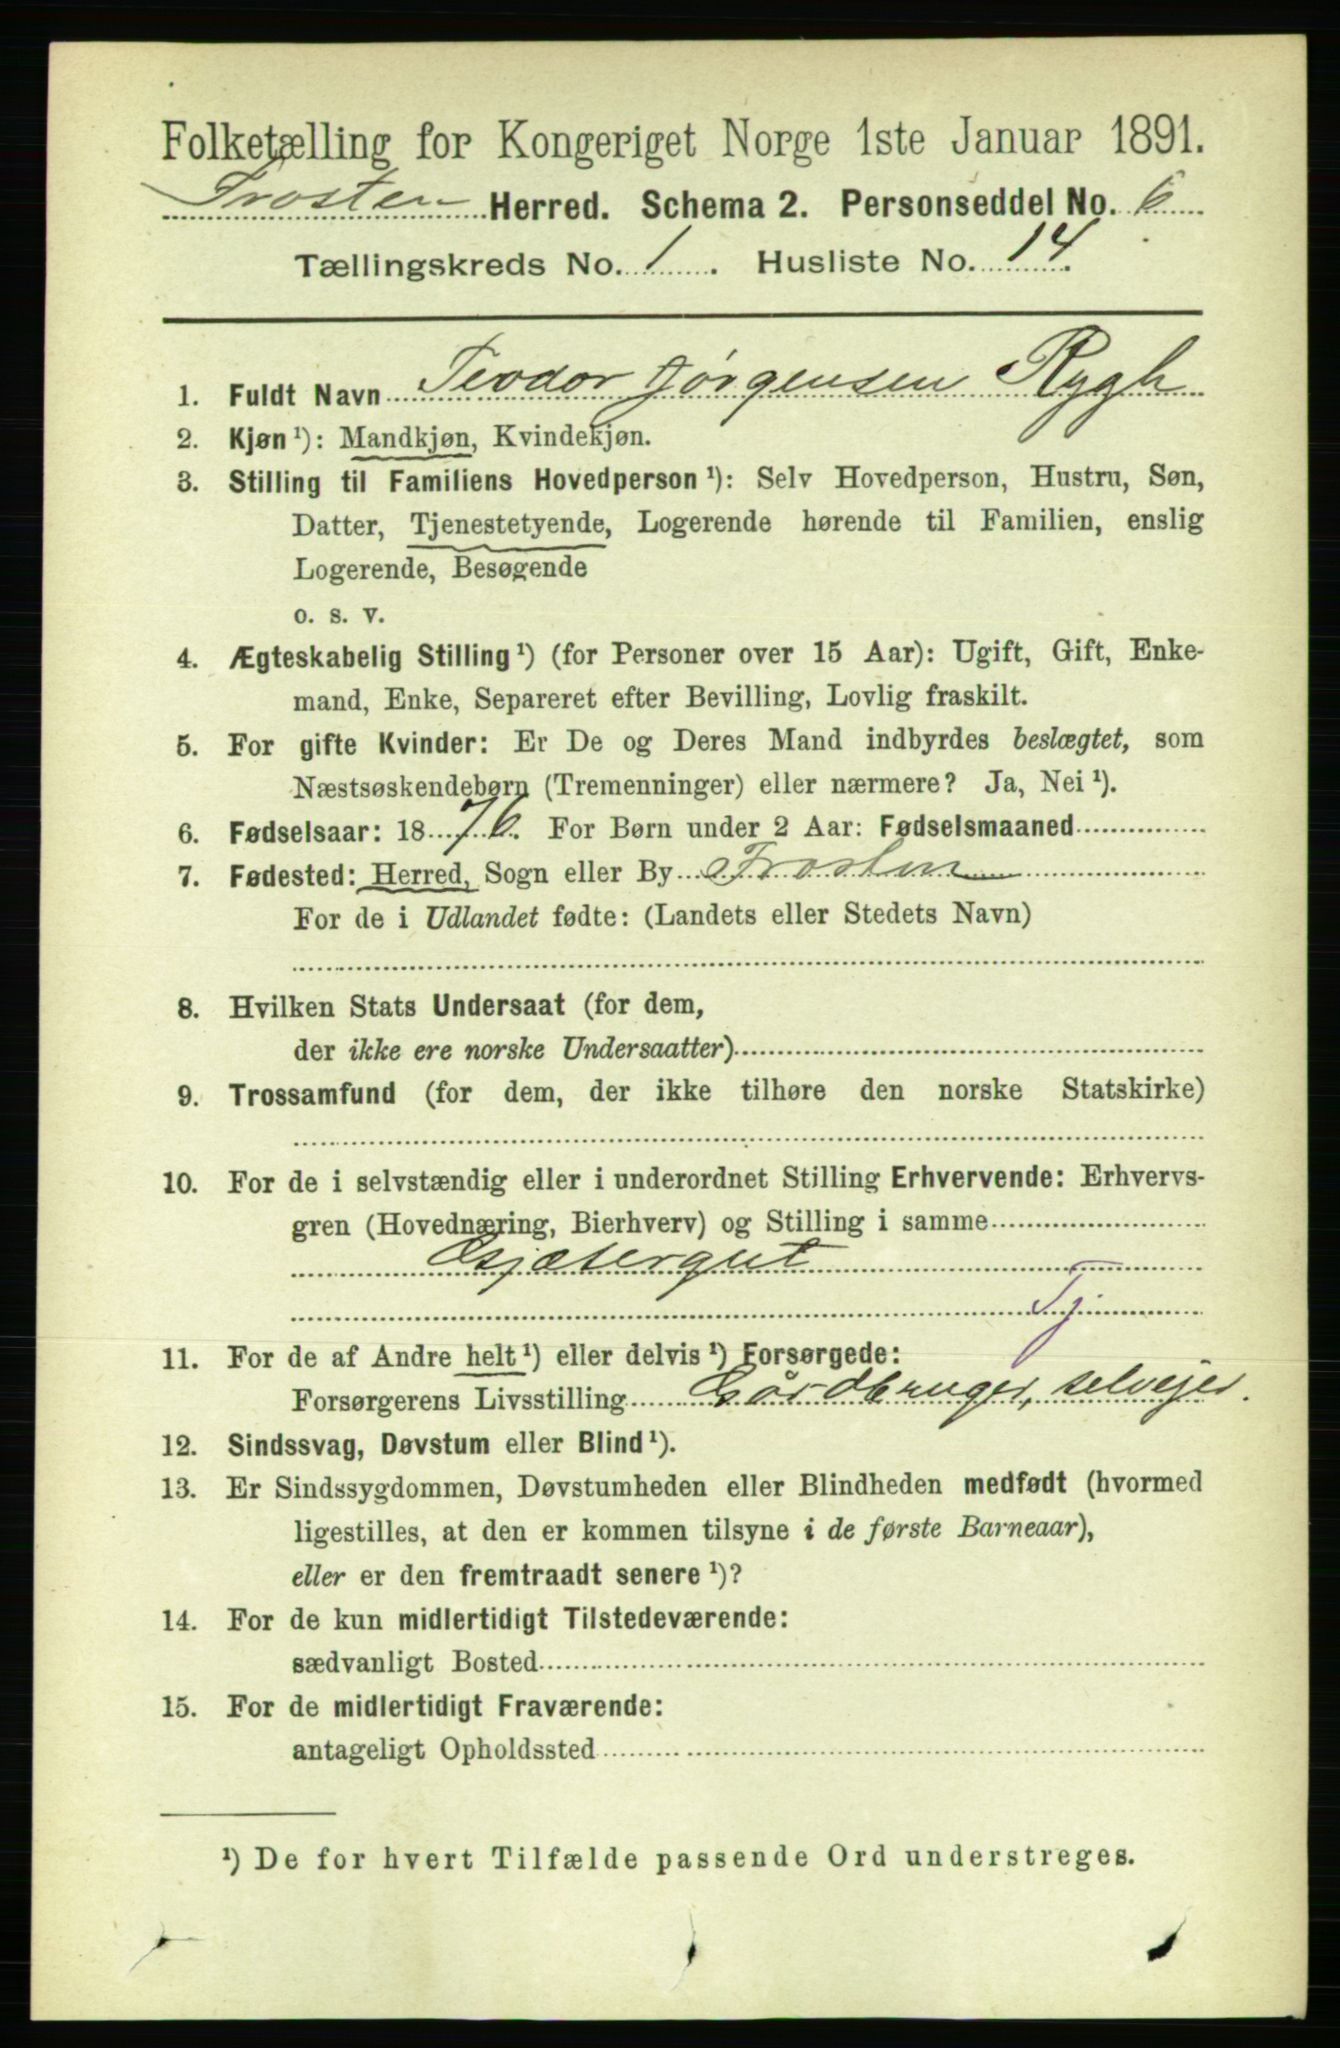 Folketælling for Kongeriget Norge 1ste Januar 1891.
Frosten Herred. Schema 2. Personseddel No. 6
Tællingskreds No. 1. Husliste No. 14.
1. Fuldt Navn Teodor Jørgensen Rygh
2. Kjøn ¹): Mandkjøn, Kvindekjøn.
3. Stilling til Familiens Hovedperson ¹): Selv Hovedperson, Hustru, Søn,
Datter, Tjenestetyende, Logerende hørende til Familien, enslig
Logerende, Besøgende
o. s. v.
4. Ægteskabelig Stilling ¹) (for Personer over 15 Aar): Ugift, Gift, Enke-
mand, Enke, Separeret efter Bevilling, Lovlig fraskilt.
5. For gifte Kvinder: Er De og Deres Mand indbyrdes beslægtet, som
Næstsøskendebørn (Tremenninger) eller nærmere? Ja, Nei ¹).
6. Fødselsaar: 1876. For Børn under 2 Aar: Fødselsmaaned
7. Fødested: Herred, Sogn eller By Frosten
For de i Udlandet fødte: (Landets eller Stedets Navn)
8. Hvilken Stats Undersaat (for dem,
der ikke ere norske Undersaatter)
9. Trossamfund (for dem, der ikke tilhøre den norske Statskirke)
10. For de i selvstændig eller i underordnet Stilling Erhvervende: Erhvervs-
gren (Hovednæring, Bierhverv) og Stilling i samme
Gjætergut
Tj
11. For de af Andre helt ¹) eller delvis ¹) Forsørgede:
Forsørgerens Livsstilling Gårdbruger, selvejer.
12. Sindssvag, Døvstum eller Blind ¹).
13. Er Sindssygdommen, Døvstumheden eller Blindheden medfødt (hvormed
ligestilles, at den er kommen tilsyne i de første Barneaar),
eller er den fremtraadt senere ¹)?
14. For de kun midlertidigt Tilstedeværende:
sædvanligt Bosted
15. For de midlertidigt Fraværende:
antageligt Opholdssted
¹) De for hvert Tilfælde passende Ord understreges.